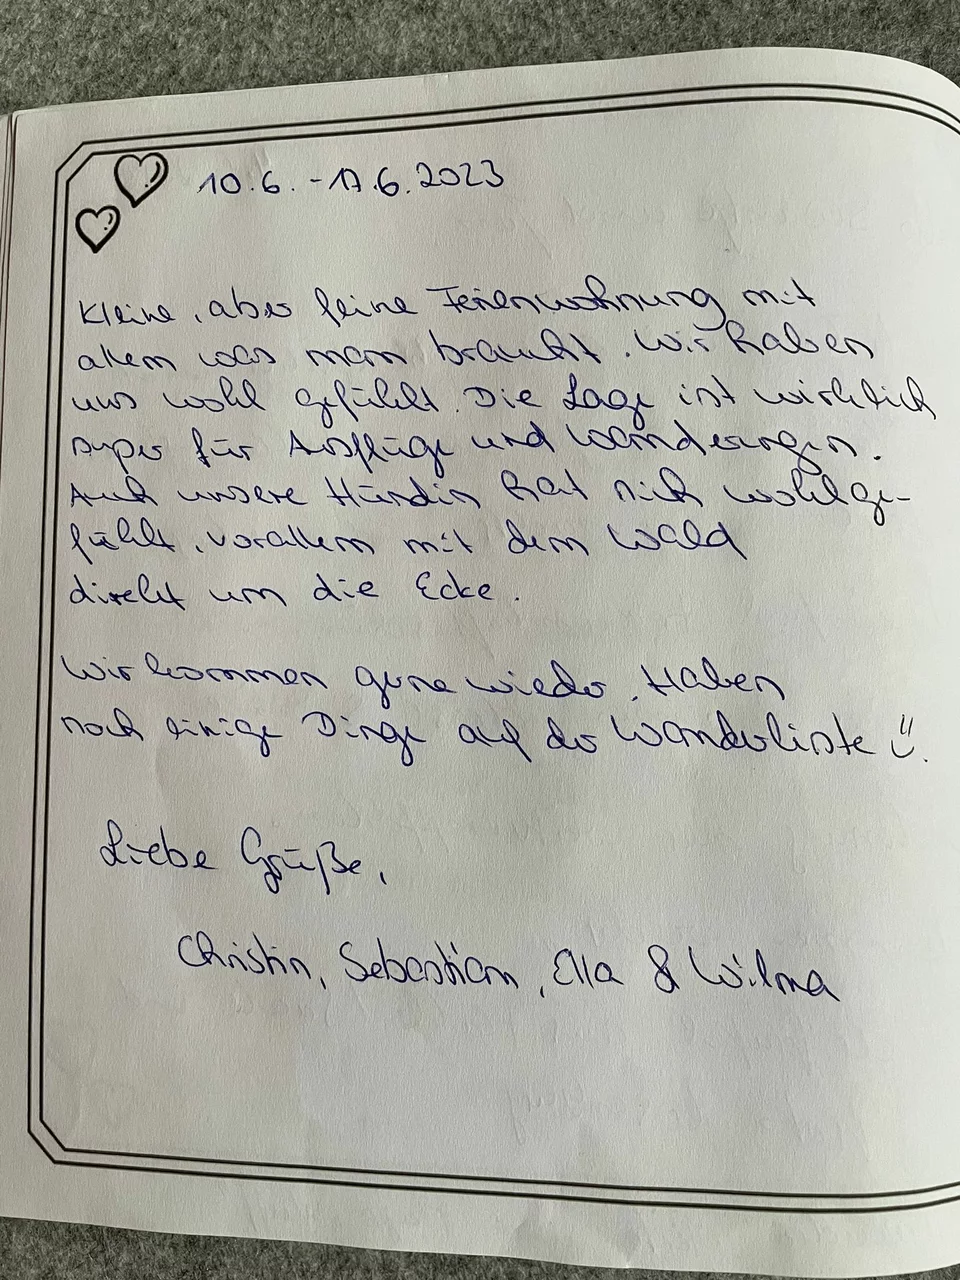 10.6. - 17.6.2023
Kleine, aber feine Ferienwohnung mit
allem was man braucht. Wir haben
uns wohl gefühlt. Die Lage ist wirklich
super für Ausflüge und Wanderungen.
Auch unsere Hündin hat sich wohlge-
fühlt, vorallem mit dem Wald
direkt um die Ecke.
Wir kommen gerne wieder. Haben
noch einige Dinge auf der Wanderliste
Liebe Grüße,
Christin, Sebastian, Ella & Wilma